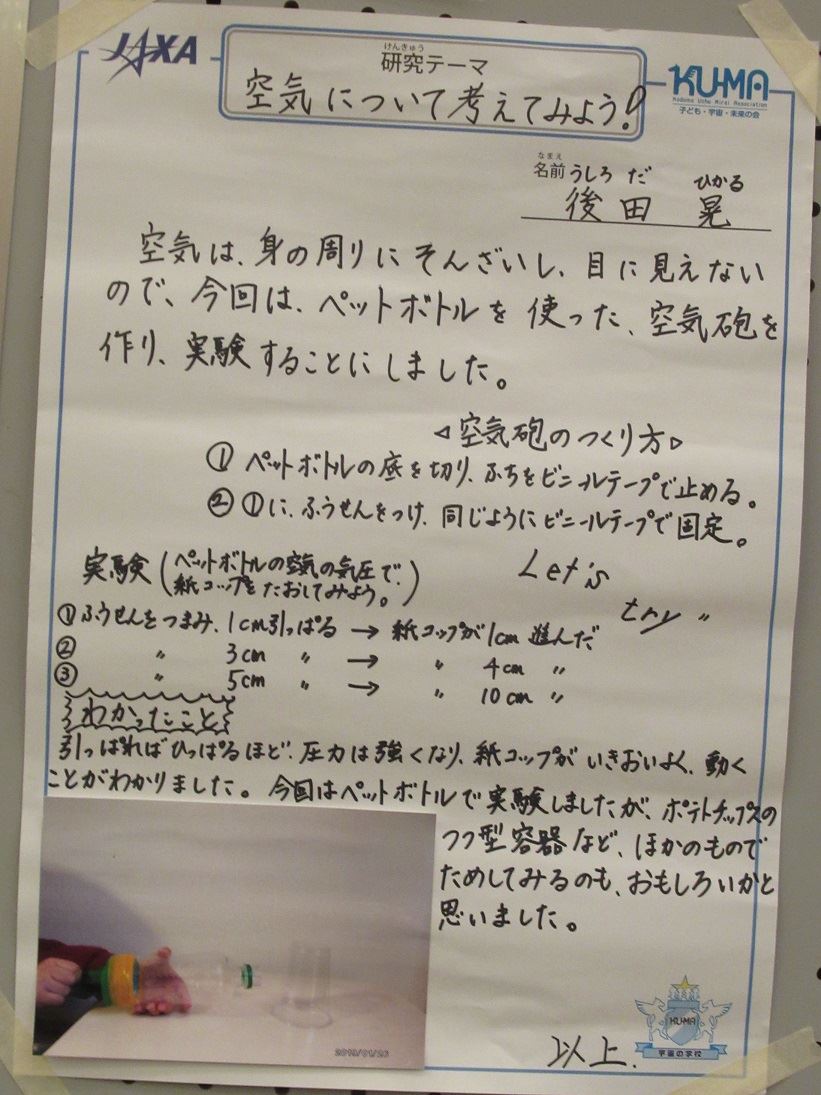 JAXA
けんきゅう
研究テーマ
空気について考えてみよう!
KU-MA
Kodomo Uchu Mirai Association
子ども・宇宙・未来の会
なまえ
名前 うしろ だ ひかる
後田 晃
空気は、身の周りにそんざいし、目に見えない
ので、今回は、ペットボトルを使った、空気砲を
作り、実験することにしました。
◁空気砲のつくり方▷
① ペットボトルの底を切り、ふちをビニールテープで止める。
② ①に、ふうせんをつけ、同じようにビニールテープで固定。
実験(ペットボトルの空気の気圧で、
紙コップをたおしてみよう。)
Let's
try 〃
①ふうせんをつまみ、1cm引っぱる → 紙コップが1cm 進んだ
② 〃 3cm 〃 → 〃 4cm 〃
③ 〃 5cm 〃 → 〃 10cm 〃
わかったこと
引っぱればひっぱるほど、圧力は強くなり、紙コップがいきおいよく、動く
ことがわかりました。今回はペットボトルで実験しましたが、ポテトチップスの
つつ型容器など、ほかのもので
ためしてみるのも、おもしろいかと
思いました。
2019/01/26
KU-MA
宇宙の学校
以上.